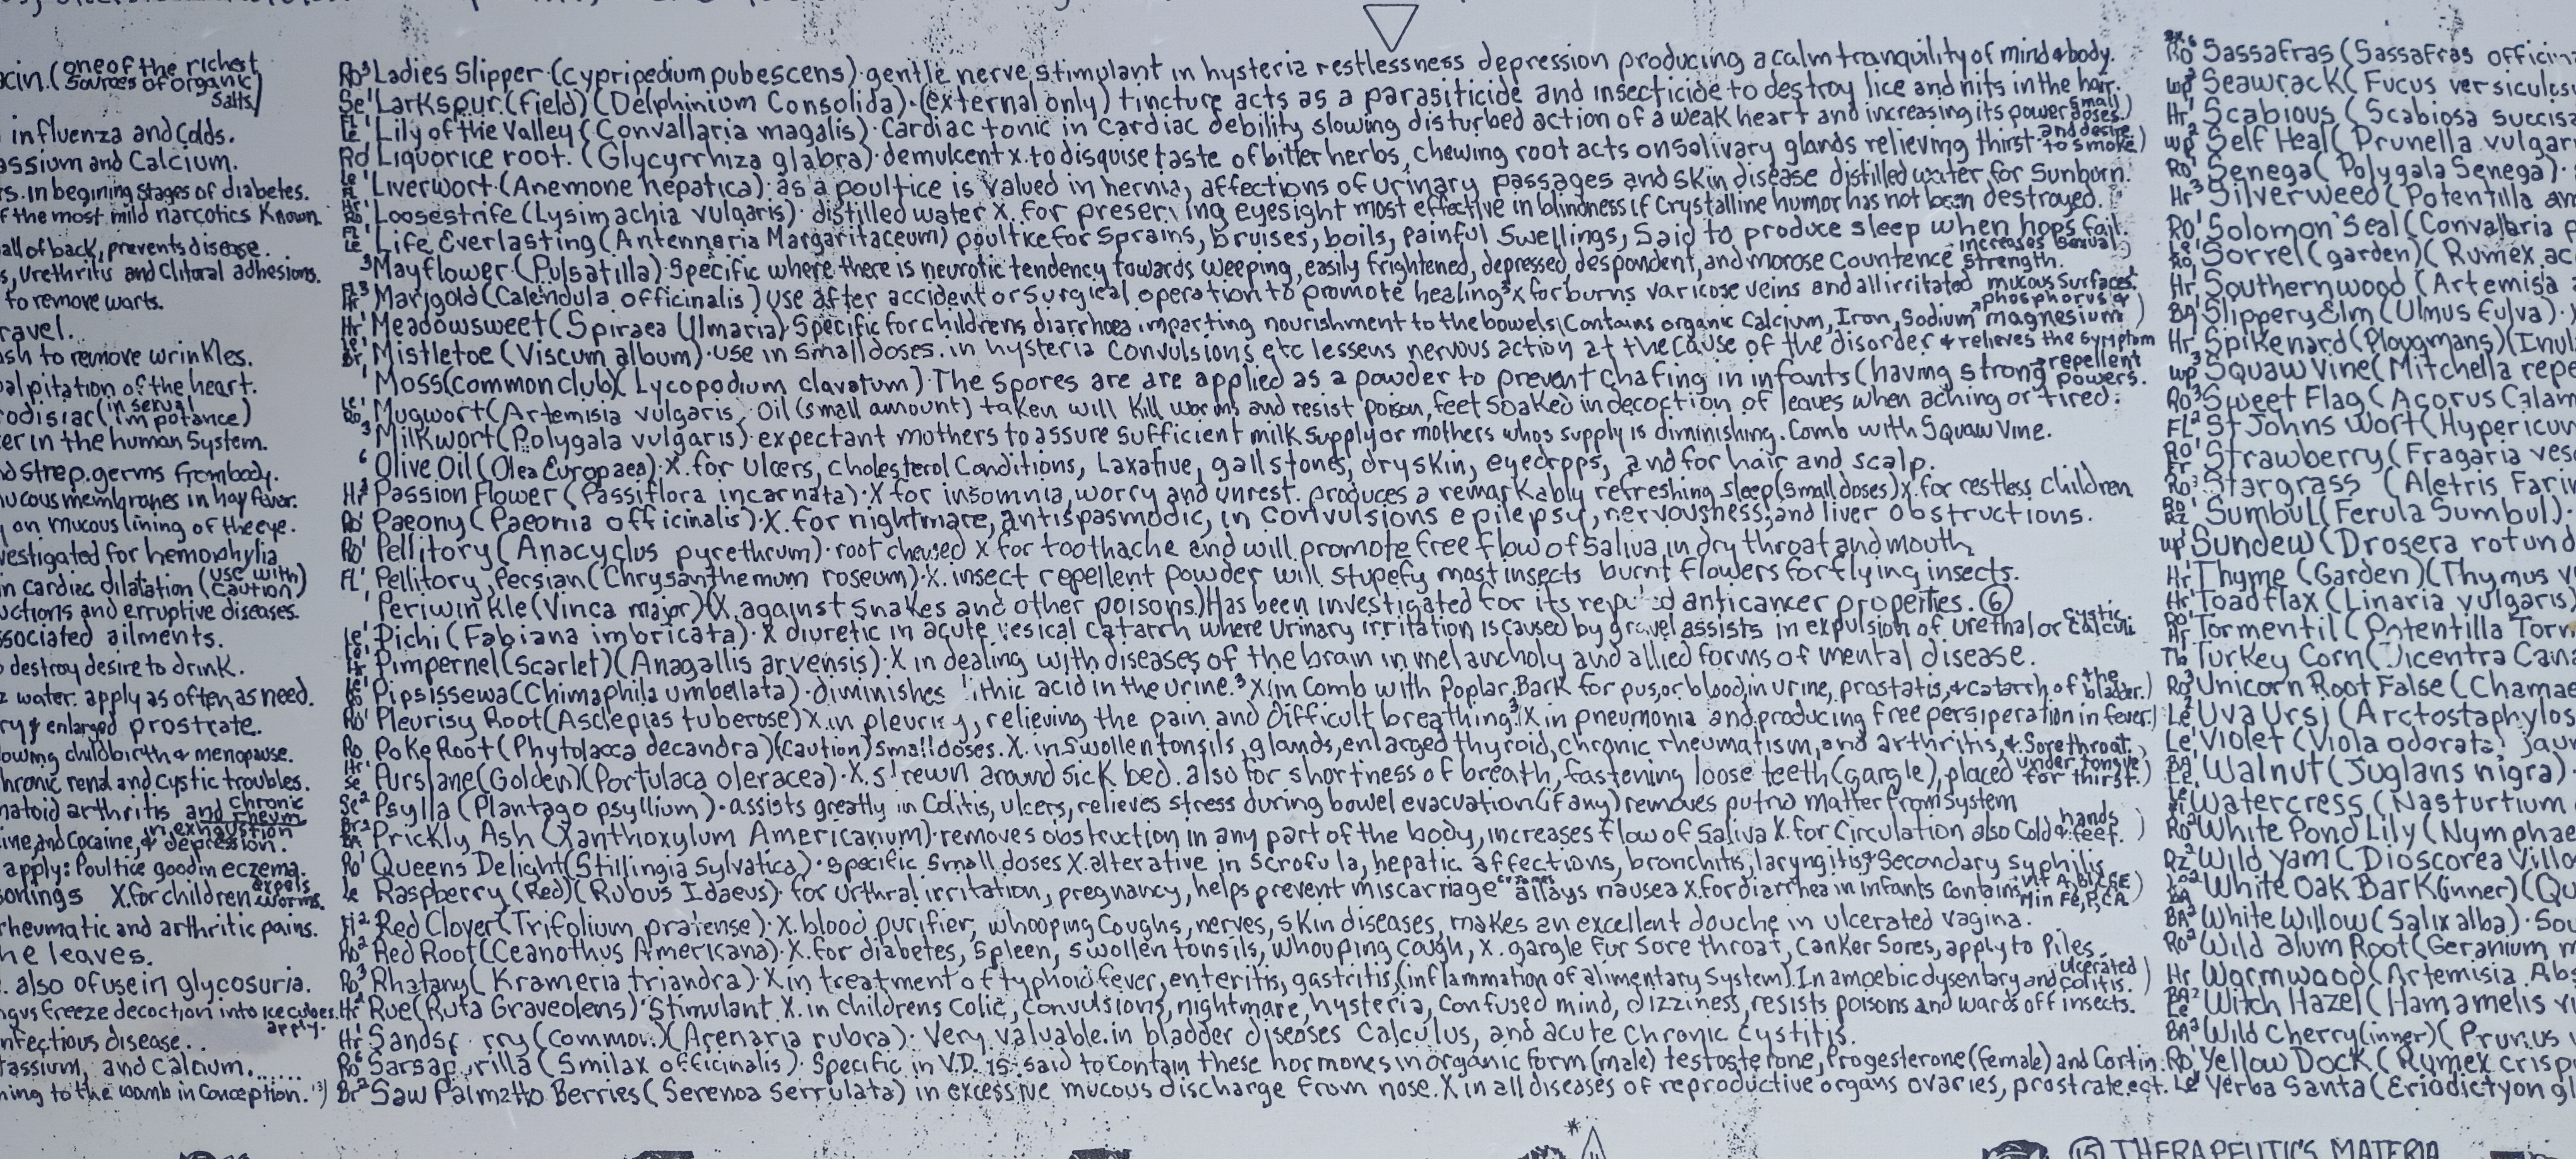 cin. (one of the richest sources of organic Salts)
influenza and Colds.
assium and Calcium.
rs. in begining stages of diabetes.
f the most mild narcotics Known.
all of back, prevents disease.
s, Urethritis and Clitoral adhesions.
to remove warts.
ravel.
sh to remove wrinkles.
palpitation of the heart.
rodisiac (in sexual impotance)
er in the human System.
nd strep. germs from body.
ucous membranes in hay fever.
y on mucous lining of the eye.
vestigated for hemophylia
in cardiac dilatation (use with Caution)
uctions and erruptive diseases.
ssociated ailments.
o destroy desire to drink.
z water. apply as often as need.
ry & enlarged prostrate.
lowing childbirth & menopause.
hronic renal and cystic troubles.
matoid arthritis and chronic rheum
ine, and Cocaine, & in exhaustion depression.
apply: Poultice good in eczema.
sonings X. for children expels worms.
rheumatic and arthritic pains.
he leaves.
. also of use in glycosuria.
ngus freeze decoction into ice cubes. apply.
nfectious disease..
tassium, and Calcium......
ning to the womb in Conception. 13)
Ro³ Ladies Slipper (cypripedium pubescens) · gentle nerve stimulant in hysteria restlessness depression producing a calm tranquility of mind & body.
Se¹ Larkspur. (field) (Delphinium Consolida) · (external only) tincture acts as a parasiticide and insecticide to destroy lice and nits in the hair.
FL¹ Le Lily of the Valley (Convallaria magalis) · Cardiac tonic in Cardiac debility slowing disturbed action of a weak heart and increasing its power small doses.)
Ro¹ Liquorice root. (Glycyrrhiza glabra) · demulcent x. to disguise taste of bitter herbs, chewing root acts on salivary glands relieving thirst and desire to smoke)
Le¹ FL Liverwort (Anemone hepatica) · as a poultice is valued in hernia, affections of urinary passages and skin disease distilled water for Sunburn.
Hr¹ Ro Loosestrife (Lysimachia vulgaris) · distilled water X. for preserving eyesight most effective in blindness if Crystalline humor has not been destroyed.
FL¹ Le Life Everlasting (Antennaria Margaritaceum) poultice for Sprains, bruises, boils, painful Swellings, Said to produce sleep when hops fail. increases sexual strength.
³ Mayflower (Pulsatilla) · Specific where there is neurotic tendency towards weeping, easily frightened, depressed, despondent, and morose countence
FL³ Hr Marigold (Calendula officinalis) use after accident or surgical operation to promote healing ³x for burns varicose veins and all irritated mucous surfaces.
Hr¹ Meadowsweet (Spiraea Ulmaria) · Specific for childrens diarrhoea imparting nourishment to the bowels (Contains organic Calcium, Iron, Sodium phosphorus & magnesium)
Le¹ Br Mistletoe (Viscum album) · use in small doses. in hysteria Convulsions etc lessens nervous action at the cause of the disorder & relieves the symptom
¹ Moss (common club) (Lycopodium clavatum) · The spores are are applied as a powder to prevent chafing in infants (having strong repellent powers.
Le¹ Ro Mugwort (Artemisia vulgaris) Oil (small amount) taken will Kill worms and resist poison, feet soaked in decoction of leaves when aching or tired.
³ Milkwort (Polygala vulgaris) · expectant mothers to assure sufficient milk supply or mothers whos supply is diminishing. Comb with Squaw Vine.
⁶ Olive Oil (Olea Europaea) · X. for ulcers, cholesterol Conditions, Laxative, gall stones, dry skin, eyedrops, and for hair and scalp.
Hr³ Passion Flower (Passiflora incarnata) · X for insomnia, worry and unrest. produces a remarkably refreshing sleep (small doses) x. for restless children
Ro¹ Paeony (Paeonia officinalis) · X. for nightmare, antispasmodic, in convulsions epilepsy, nervousness, and liver obstructions.
Ro¹ Pellitory (Anacyclus pyrethrum) · root chewed x for toothache and will promote free flow of saliva in dry throat and mouth
FL¹ Pellitory, Persian (Chrysanthemum roseum) · X. insect repellent powder will stupefy most insects burnt flowers for flying insects.
¹ Periwinkle (Vinca major) (X. against snakes and other poisons) Has been investigated for its anticancer properties. ⑥
Le¹ Pichi (Fabiana imbricata) · X diuretic in acute vesical catarrh where urinary irritation is caused by gravel assists in expulsion of urethal or cystic calculi
Le¹ Hr Pimpernel (Scarlet) (Anagallis arvensis) · X in dealing with diseases of the brain in melancholy and allied forms of mental disease.
Le¹ Pipsissewa (Chimaphila umbellata) · diminishes lithic acid in the urine. ³X (in Comb with Poplar Bark for pus, or blood in urine, prostatis, & catarrh of the bladder.)
Ro¹ Pleurisy Root (Asclepias tuberose) X. in pleurisy, relieving the pain and difficult breathing ³(X in pneumonia and producing free persiperation in fever.)
Ro Poke Root (Phytolacca decandra) (caution) small doses. X. in swollen tonsils, glands, enlarged thyroid, chronic rheumatism, and arthritis, & Sore throat.
Hr¹ Se Purslane (Golden) (Portulaca oleracea) · X. strewn around sick bed. also for shortness of breath, fastening loose teeth (gargle), placed under tongue for thirst.)
Se² Psylla (Plantago psyllium) · assists greatly in Colitis, ulcers, relieves stress during bowel evacuation (if any) removes putrid matter from System
Br² BA Prickly Ash (Xanthoxylum Americanum) · removes obstruction in any part of the body, increases flow of saliva X. for Circulation also Cold hands & feet.)
Ro¹ Queens Delight (Stillingia Sylvatica) · specific small doses X. alterative in Scrofula, hepatic affections, bronchitis, laryngitis & Secondary syphilis
Le Raspberry (Red) (Rubus Idaeus) · for urthral irritation, pregnancy, helps prevent miscarriage allays nausea x. for diarrhea in infants contains Min Fe, P, CA.)
FL² Red Clover (Trifolium pratense) · X. blood purifier, whooping Coughs, nerves, skin diseases, makes an excellent douche in ulcerated vagina.
Ro² Red Root (Ceanothus Americana) · X. for diabetes, spleen, swollen tonsils, whouping cough, x. gargle fur sore throat, canker Sores, apply to piles.
Ro³ Rhatany (Krameria triandra) · X in treatment of typhoid fever, enteritis, gastritis, (inflammation of alimentary system). In amoebic dysentary and ulcerated colitis.)
Hr² Rue (Ruta Graveolens) · Stimulant X. in childrens Colic, convulsions, nightmare, hysteria, confused mind, dizziness, resists poisons and wards off insects.
Hr¹ (common) (Arenaria rubra) · Very valuable in bladder diseases Calculus, and acute chronic cystitis.
Ro⁶ (Smilax officinalis) · Specific in V.D. is said to contain these hormones in organic form (male) testosterone, Progesterone (female) and Cortin.
Br² Saw Palmetto Berries (Serenoa Serrulata) in excessive mucous discharge from nose. X in all diseases of reproductive organs ovaries, prostrate ect.
Ro⁶ Sassafras (Sassafras officin
wp² Seawrack (Fucus versiculus
Hr¹ Scabious (Scabiosa succisa
wp² Self Heal (Prunella vulgar
Ro¹ Senega (Polygala Senega) ·
Hr³ Silverweed (Potentilla an
Ro¹ Solomon Seal (Convallaria
Le¹ Ro Sorrel (garden) (Rumex ac
Hr¹ Southernwood (Artemisia
BA¹ Slippery Elm (Ulmus fulva) ·
Hr¹ Spikenard (Ploygmans) (Inul
wp³ Squaw Vine (Mitchella repe
Ro³ Sweet Flag (Acorus Calam
FL² St Johns Wort (Hypericum
Ro¹ Fr Strawberry (Fragaria ves
Ro³ Stargrass (Aletris Farin
Ro¹ Rz Sumbul (Ferula Sumbul) ·
wp¹ Sundew (Drosera rotund
Hr¹ Thyme (Garden) (Thymus v
Hr¹ Toadflax (Linaria vulgaris)
Ro¹ Hr Tormentil (Potentilla Torm
Tb Turkey Corn (Dicentra Cana
Ro³ Unicorn Root False (Chamae
Le² Uva Ursi (Arctostaphylos
Le¹ Violet (Viola odorata)
BA¹ Le Walnut (Juglans nigra) ·
Le¹ Watercress (Nasturtium
Ro² White Pond Lily (Nymphae
Rz² Wild Yam (Dioscorea Villo
BA White Oak Bark (inner) (Qu
BA² White Willow (Salix alba) · Sou
Ro² Wild alum Root (Geranium m
Hr Wormwood (Artemisia Abs
BA² Le Witch Hazel (Hamamelis vi
BA² Wild Cherry (inner) (Prunus
Ro¹ Yellow Dock (Rumex crisp
Le¹ Yerba Santa (Eriodictyon gl
⑮ THERAPEUTICS MATERIA